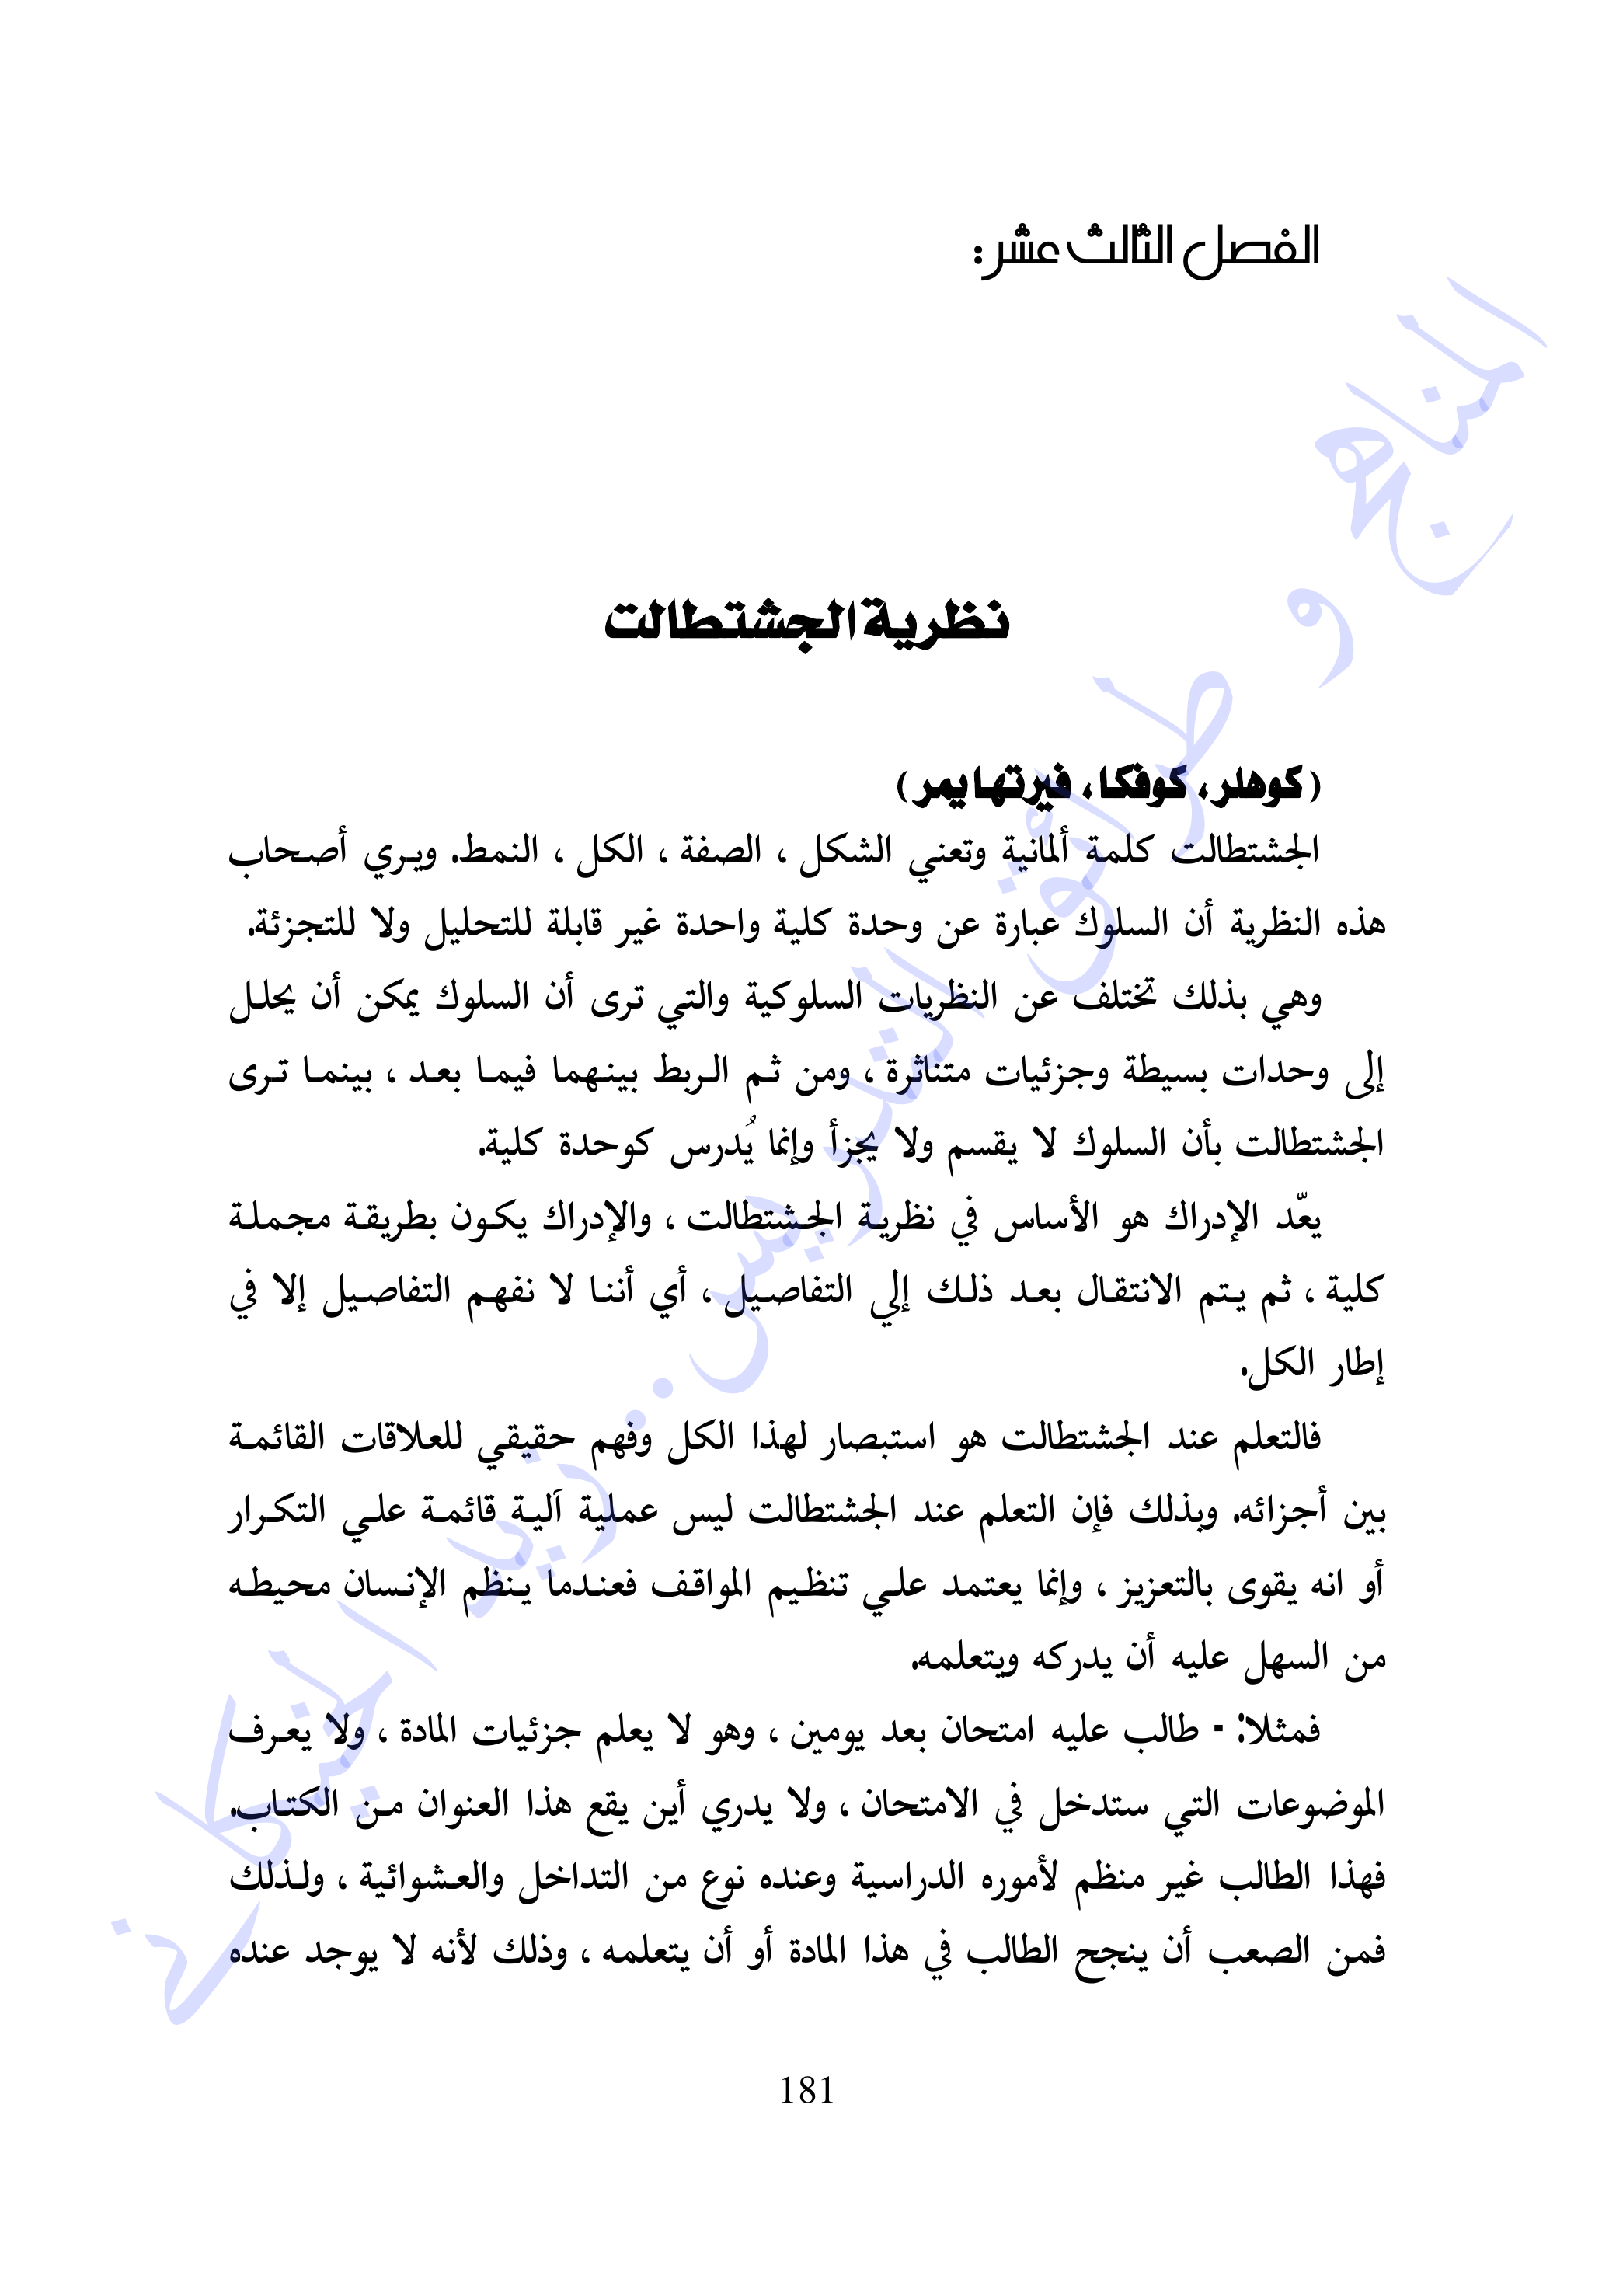 الفصل الثالث عشر:
نظرية الجشتطالت
(كوهلر، كوفكا، فيرتهايمر)
الجشتطالت كلمة ألمانية وتعني الشكل ، الصفة ، الكل ، النمط. ويري أصحاب
هذه النظرية أن السلوك عبارة عن وحدة كلية واحدة غير قابلة للتحليل ولا للتجزئة.
وهي بذلك تختلف عن النظريات السلوكية والتي ترى أن السلوك يمكن أن يحلل
إلى وحدات بسيطة وجزئيات متناثرة ، ومن ثم الربط بينهما فيما بعد ، بينما ترى
الجشتطالت بأن السلوك لا يقسم ولا يجزأ وإنما يُدرس كوحدة كلية.
يعّد الإدراك هو الأساس في نظرية الجشتطالت ، والإدراك يكون بطريقة مجملة
كلية ، ثم يتم الانتقال بعد ذلك إلي التفاصيل ، أي أننا لا نفهم التفاصيل إلا في
إطار الكل.
فالتعلم عند الجشتطالت هو استبصار لهذا الكل وفهم حقيقي للعلاقات القائمة
بين أجزائه. وبذلك فإن التعلم عند الجشتطالت ليس عملية آلية قائمة علي التكرار
أو انه يقوى بالتعزيز ، وإنما يعتمد علي تنظيم المواقف فعندما ينظم الإنسان محيطه
من السهل عليه أن يدركه ويتعلمه.
فمثلا: - طالب عليه امتحان بعد يومين ، وهو لا يعلم جزئيات المادة ، ولا يعرف
الموضوعات التي ستدخل في الامتحان ، ولا يدري أين يقع هذا العنوان من الكتاب.
فهذا الطالب غير منظم لأموره الدراسية وعنده نوع من التداخل والعشوائية ، ولذلك
فمن الصعب أن ينجح الطالب في هذا المادة أو أن يتعلمه ، وذلك لأنه لا يوجد عنده
181
المناهج و طرائق التدريس.. زيد الخيكاني